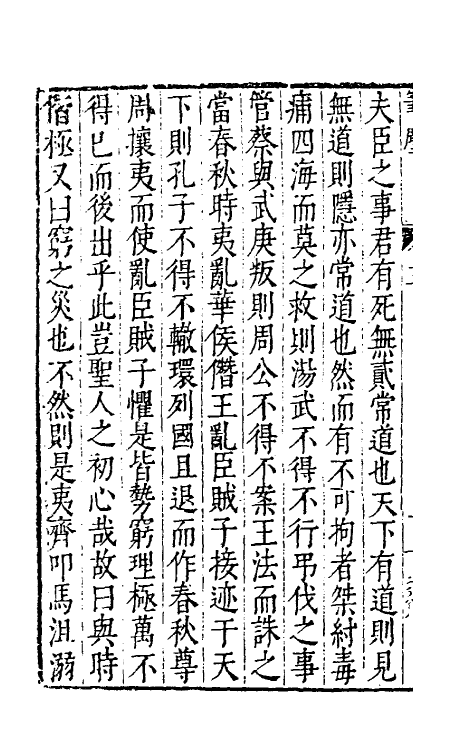 夫臣之事君有死無貳常道也天下有道則見
無道則隱亦常道也然而有不可拘者桀紂毒
痡四海而莫之救則湯武不得不行弔伐之事
管蔡與武庚叛則周公不得不案王法而誅之
當春秋時夷亂華侯僭王亂臣賊子接迹于天
下則孔子不得不轍環列國且退而作春秋尊
周攘夷而使亂臣賊子懼是皆勢窮理極萬不
得已而後出乎此豈聖人之初心哉故曰與時
偕極又曰窮之災也不然則是夷齊叩馬沮溺